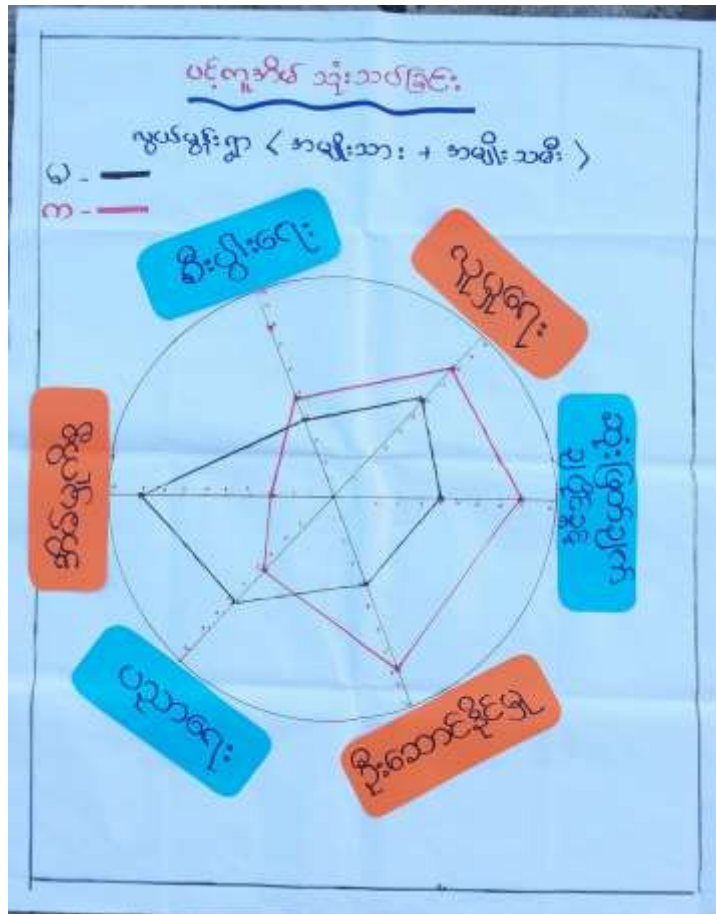 ပင့်ကူအိမ် သုံးသပ်ခြင်း
လွယ်မွန်းရွာ < အမျိုးသား + အမျိုးသမီး >
မ -
က -
စီးပွါးရေး
လူမှုရေး
ပိုင်းဖြတ်ချက်
ချမှတ်နိုင်မှု
ဦးဆောင်နိုင်မှု
ပညာရေး
အိမ်မှုကိစ္စ